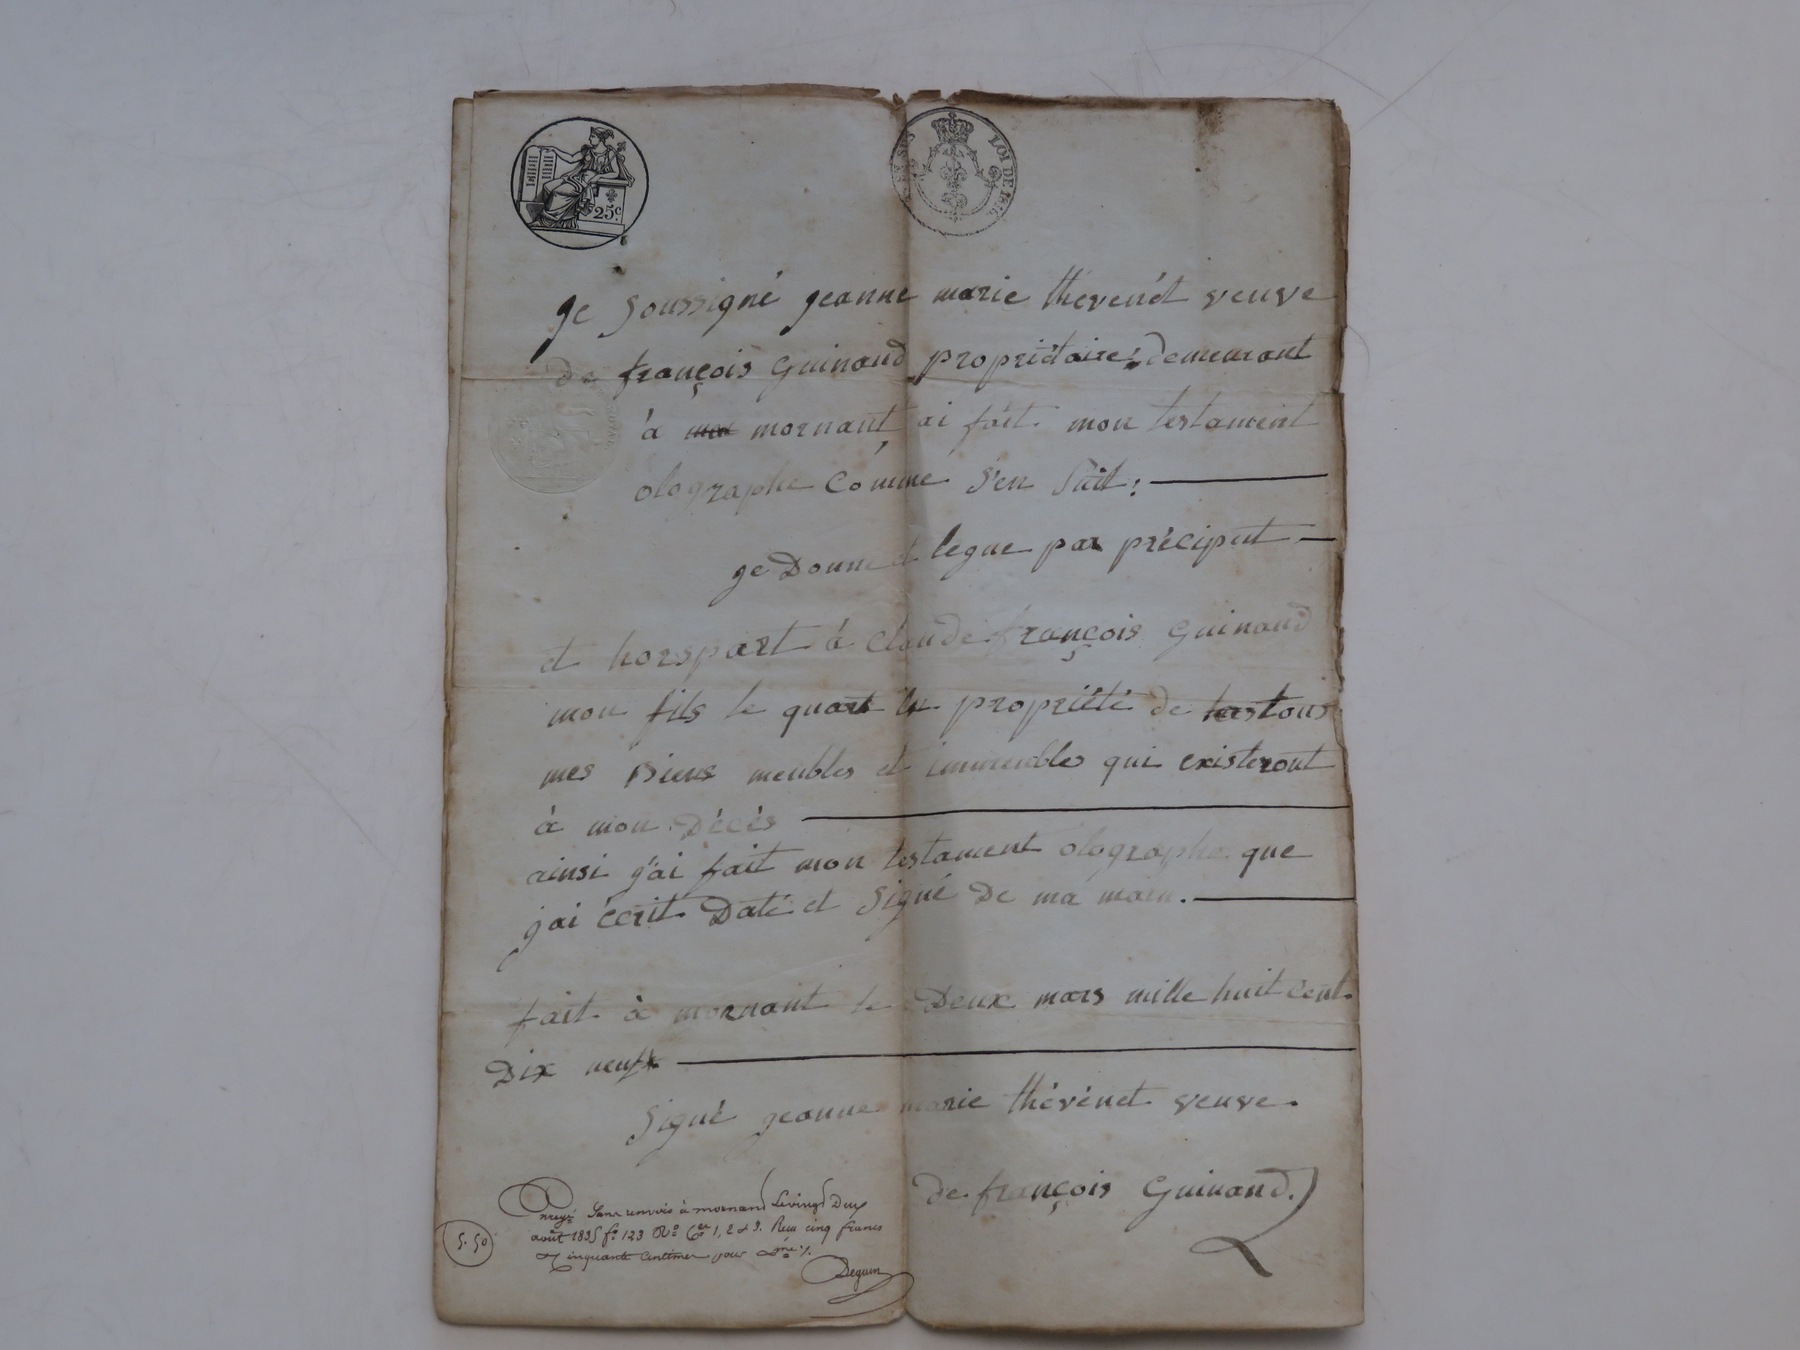 25c
LOI DE 1816
ge soussigné geanne marie thévenèt veuve
de françois Guinand propriétaire, demeurant
à mornant, ai fait mon testament
olographe comme s'en suit:
ge Donne et legue par préciput
et horspart à claude françois Guinand
mon fils le quart en propriété de tous
mes Biens meubles et immeubles qui existeront
à mon Décès
ainsi j'ai fait mon testament olographe que
j'ai écrit Daté et signé De ma main.
fait à mornant le Deux mars mille huit cent
Dix neuf
signé geanne marie thévénet veuve
de françois Guinand.
Enregé Sans renvois à mornand Le vingt Deux
août 1835 fo 123 Ro Ces 1, 2 & 3. Reçu cinq francs
cinquante centimes pour
5.50
Deguin